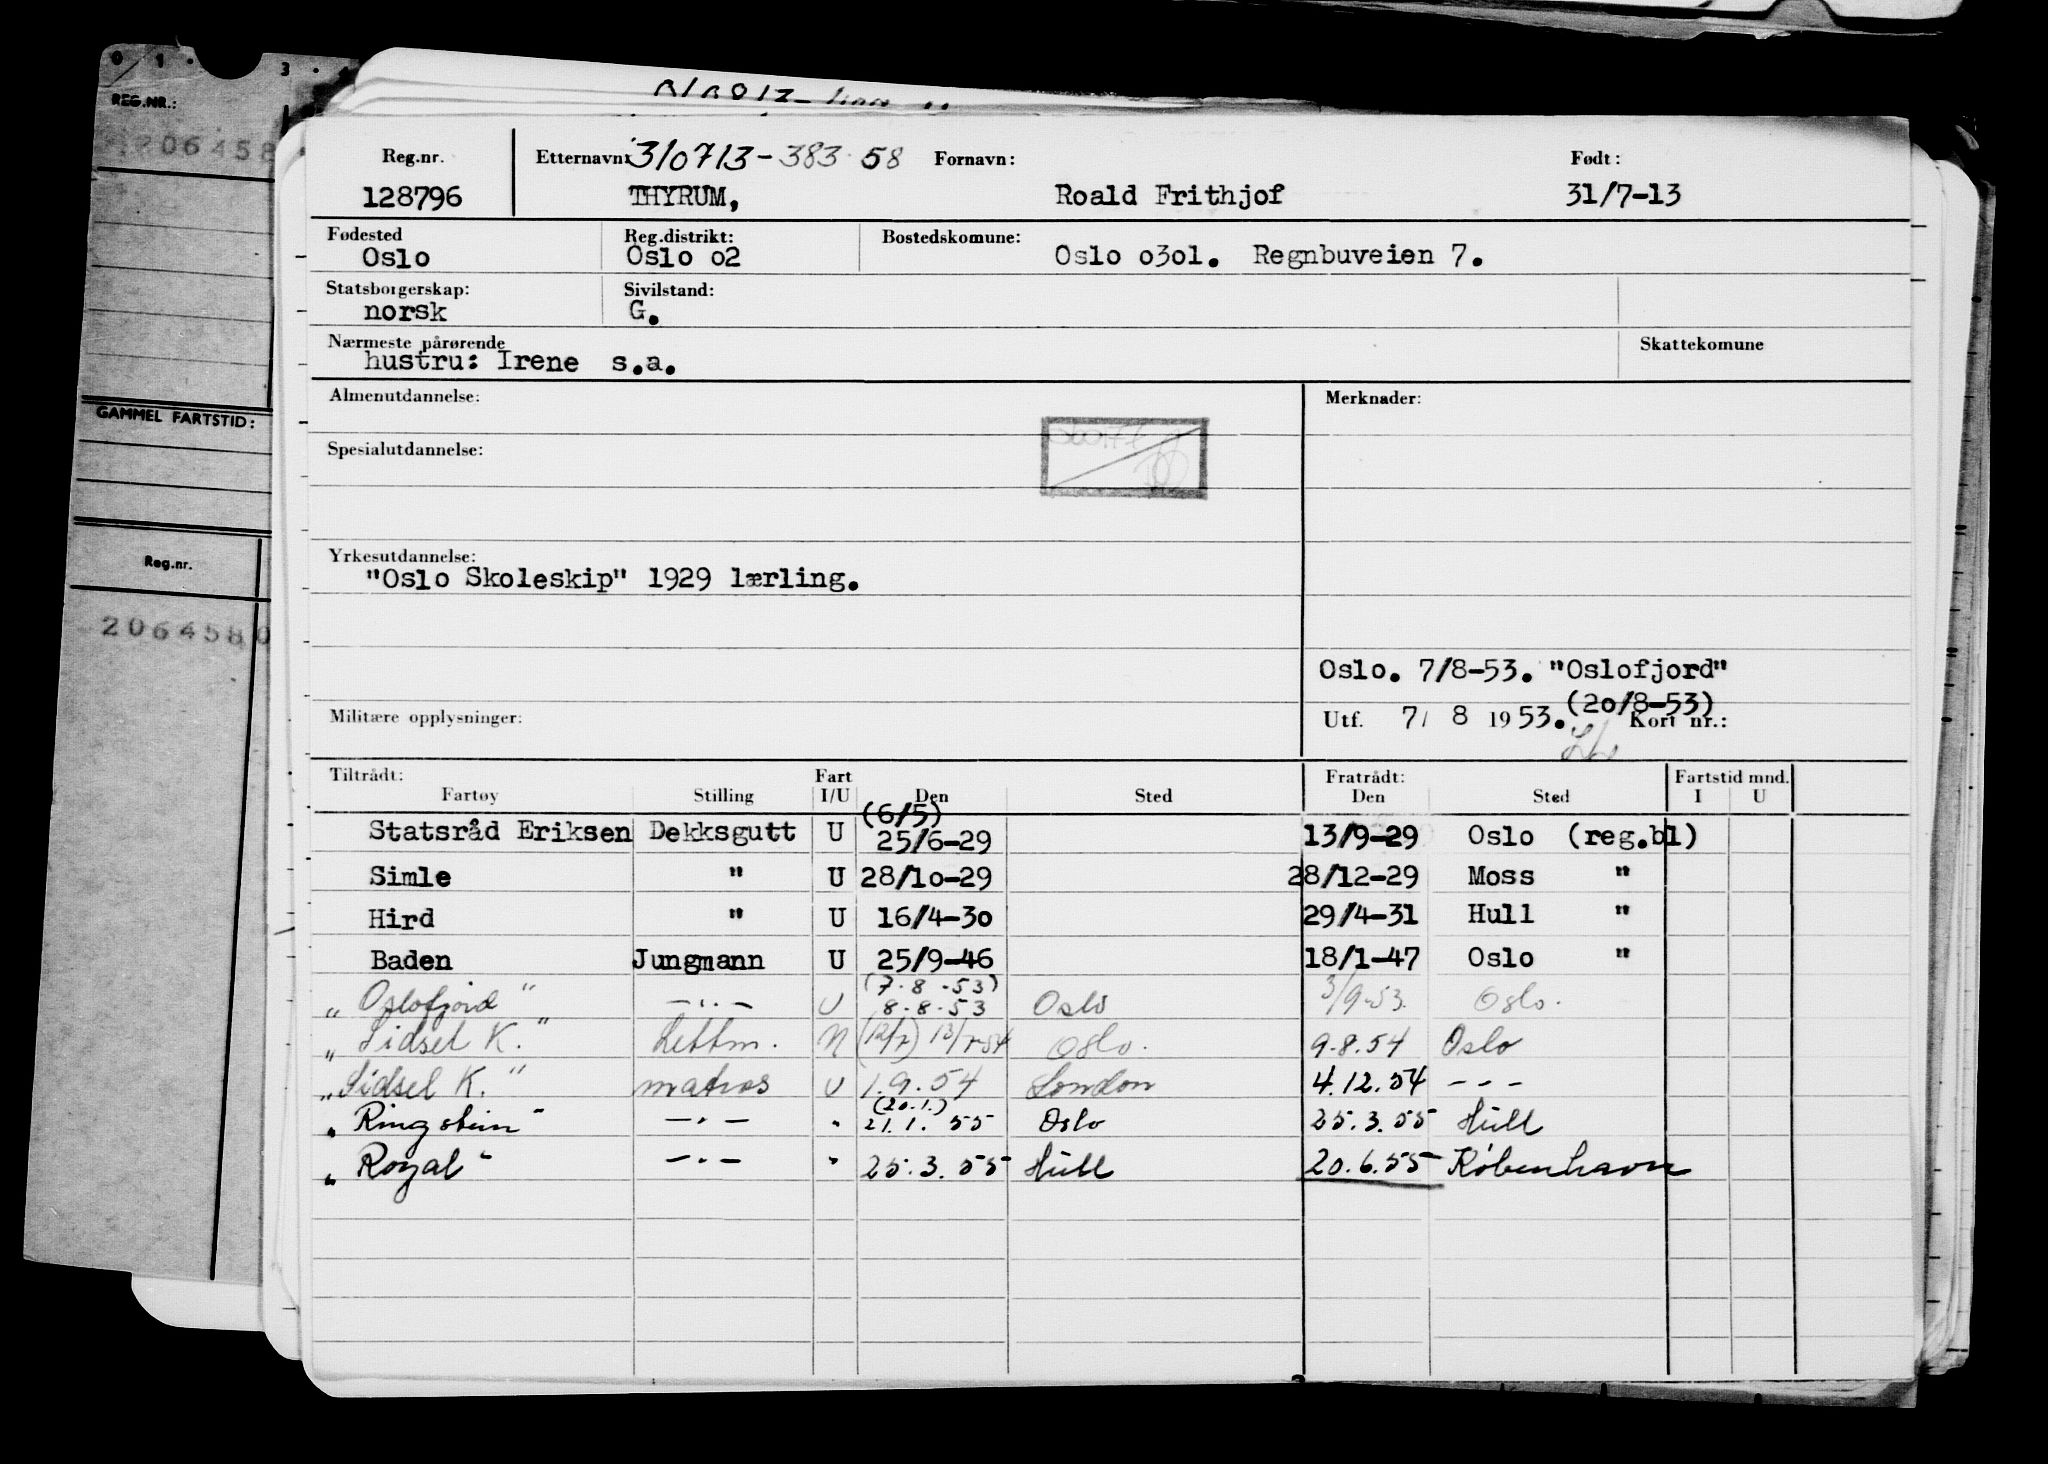 REG.NR.:
206458
GAMMEL FARTSTID:
Reg.nr.
2064580
Reg.nr. Etternavn: 310713-383 58 Fornavn: Født:
128796 THYRUM, Roald Frithjof 31/7-13
Fødested Reg.distrikt: Bostedskomune:
Oslo Oslo o2 Oslo o3o1. Regnbuveien 7.
Statsborgerskap: Sivilstand:
norsk G.
Nærmeste pårørende Skattekomune
hustru: Irene s.a.
Almenutdannelse: Merknader:
Spesialutdannelse:
Yrkesutdannelse:
"Oslo Skoleskip" 1929 lærling.
Oslo. 7/8-53. "Oslofjord"
(20/8-53)
Militære opplysninger: Utf. 7/ 8 1953. Kort nr.:
Tiltrådt: Fart Fratrådt: Fartstid mnd.
Fartøy Stilling I/U Den Sted Den Sted I U
(6/5)
Statsråd Eriksen Dekksgutt U 25/6-29 13/9-29 Oslo (reg.bl)
Simle " U 28/1o-29 28/12-29 Moss "
Hird " U 16/4-3o 29/4-31 Hull "
Baden Jungmann U 25/9-46 18/1-47 Oslo "
(7.8.53)
"Oslofjord" -"- U 8.8.53 Oslo 3/9-53. Oslo.
"Sidsel K." Lettm. N (12/7) 13/7-54 Oslo. 9.8.54 Oslo
"Sidsel K." matros U 1.9.54 London 4.12.54 ---
(20.1.)
"Ringstein" -"- " 21.1.55 Oslo 25.3.55 Hull
"Royal" -"- " 25.3.55 Hull 20.6.55 København